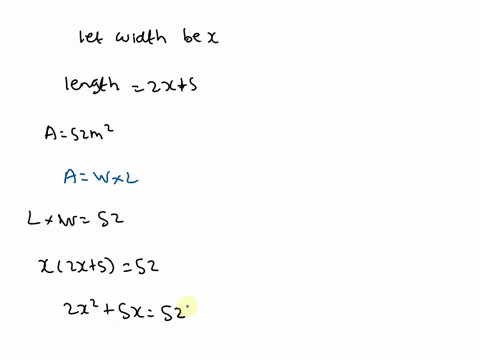 let width be x
length = 2x+5
A=52m²
A=W×L
L×W=52
x(2x+5)=52
2x²+5x=52